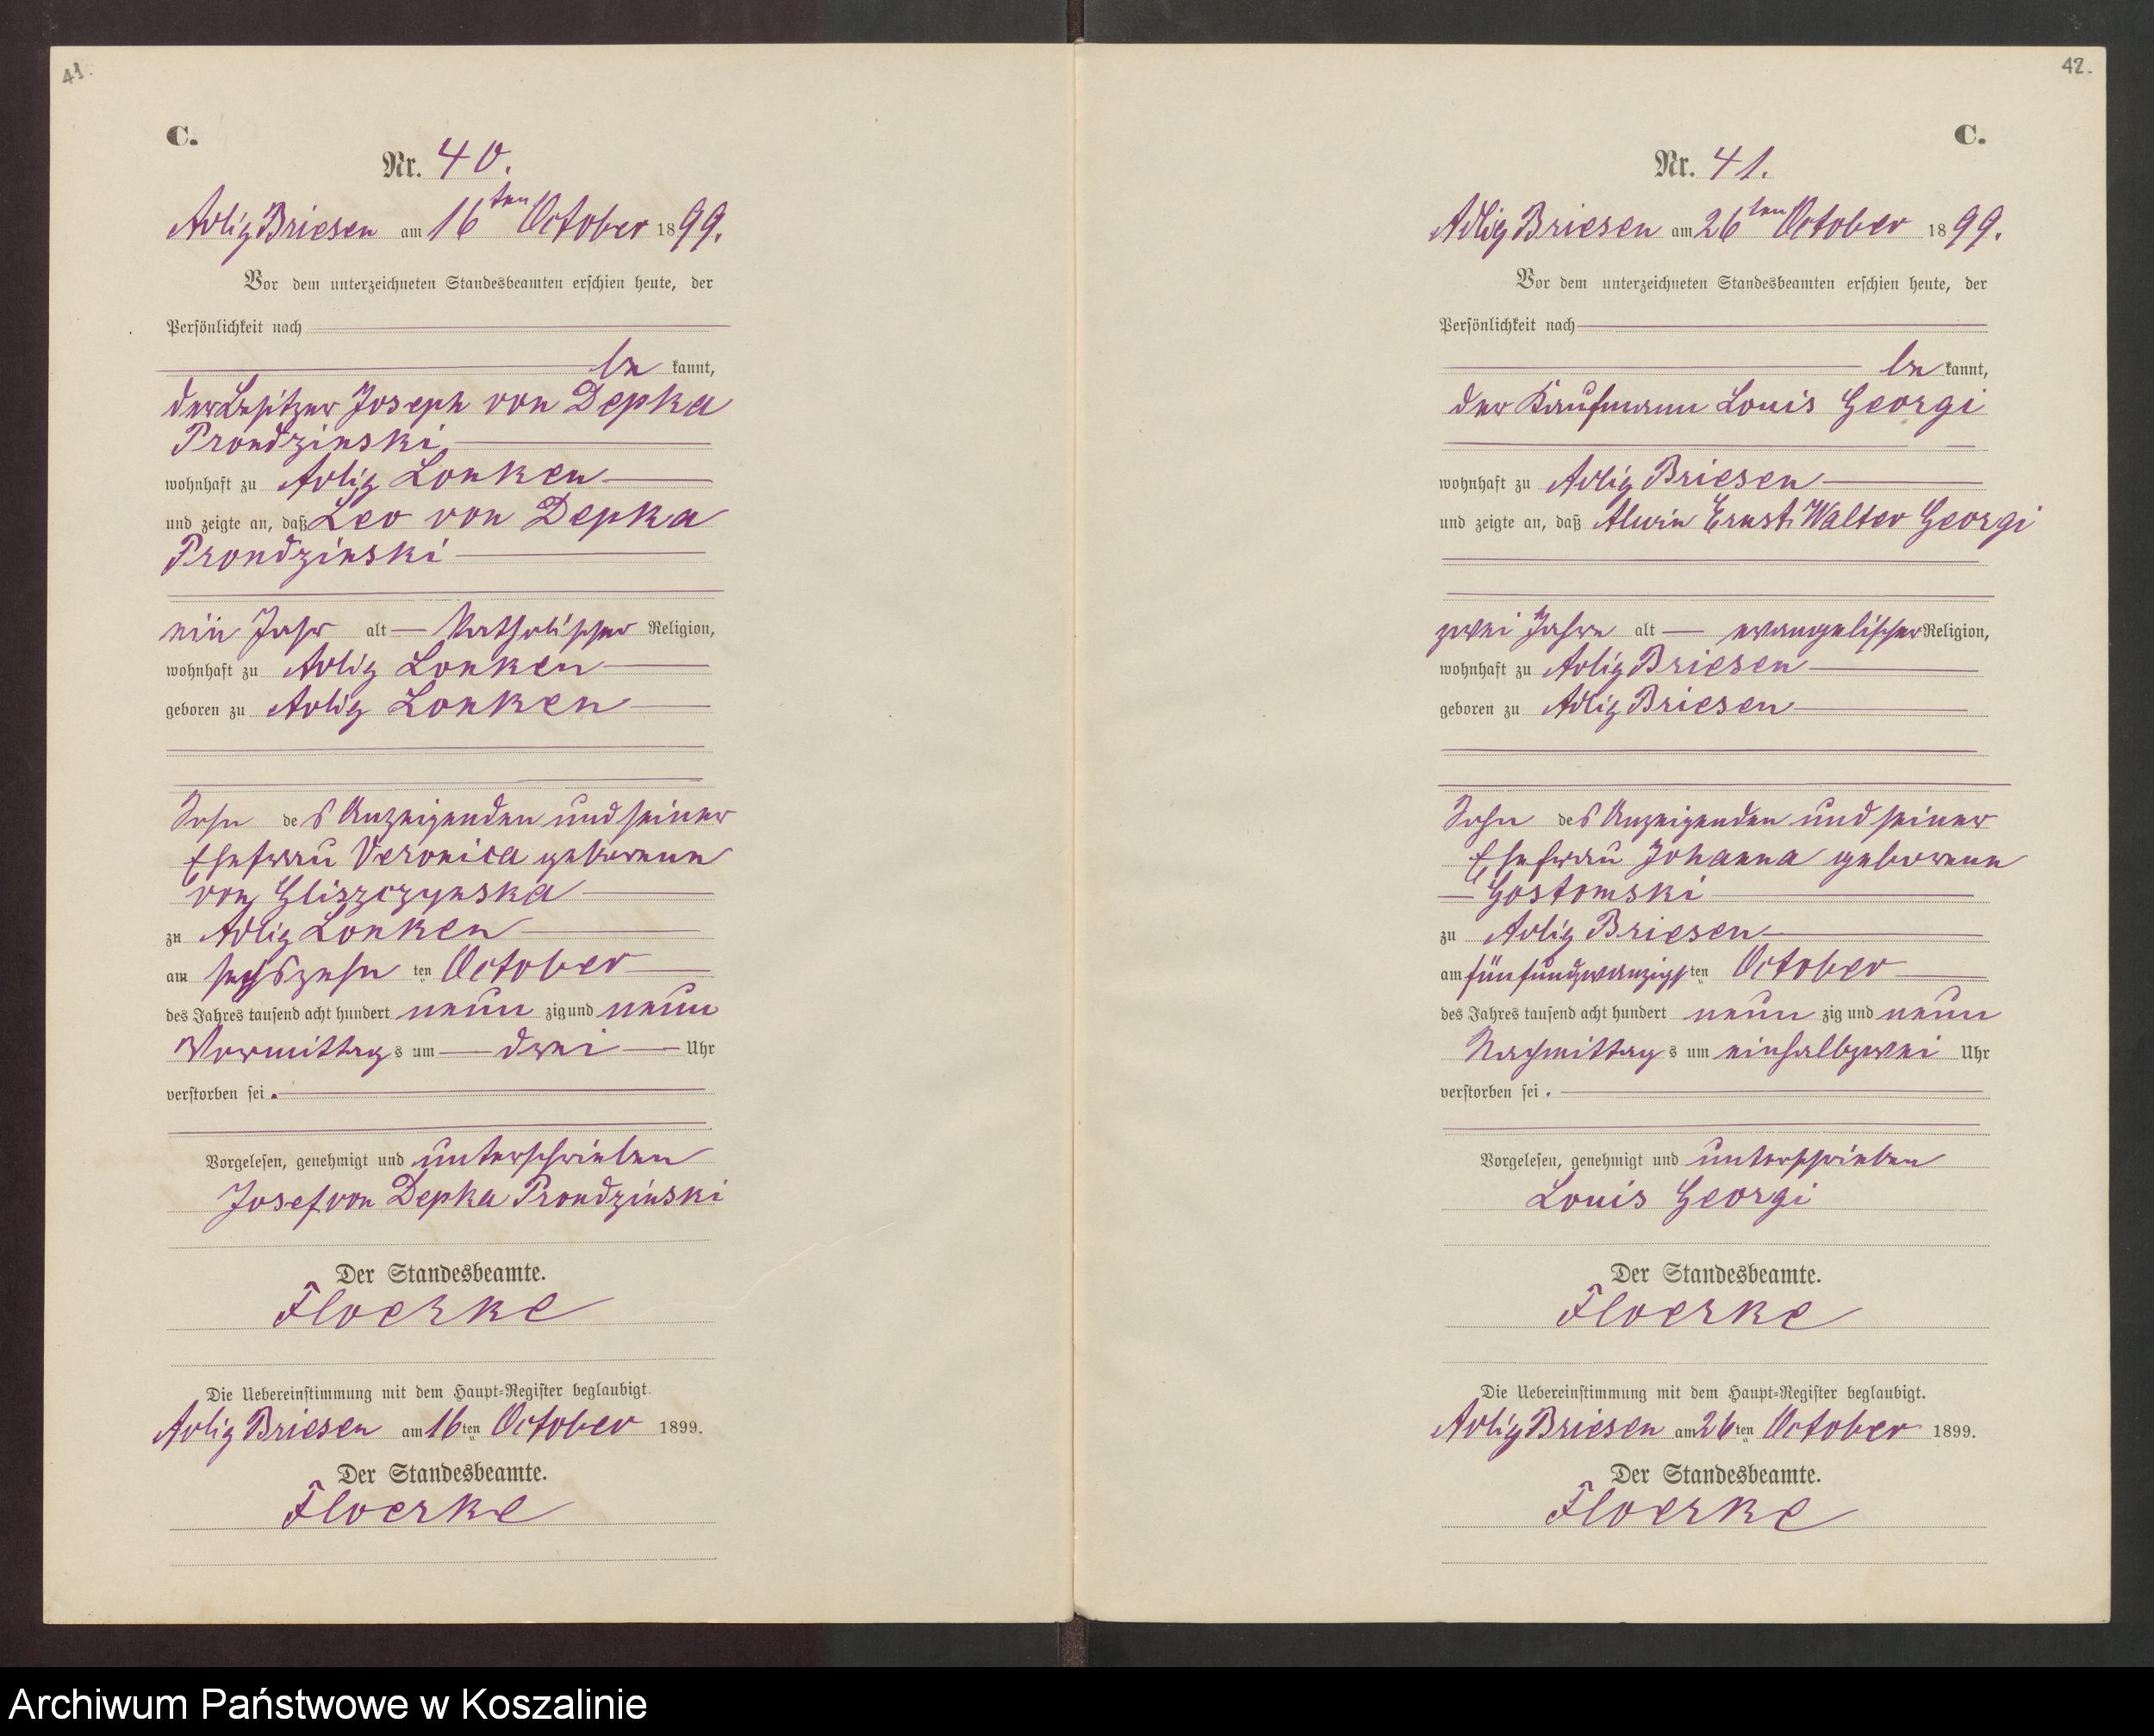 41.
C.
Nr. 40.
Adlig Briesen am 16ten October 1899.
Vor dem unterzeichneten Standesbeamten erschien heute, der
Persönlichkeit nach
be kannt,
der Besitzer Joseph von Depka
Prondzinski,
wohnhaft zu Adlig Lonken
und zeigte an, daß Leo von Depka
Prondzinski
ein Jahr alt — katholischer Religion,
wohnhaft zu Adlig Lonken
geboren zu Adlig Lonken
Sohn des Anzeigenden und seiner
Ehefrau Veronica geborenen
von Gliszczynska
zu Adlig Lonken
am sechszehn ten October
des Jahres tausend acht hundert neun zig und neun
Vormittags um — drei — Uhr
verstorben sei.
Vorgelesen, genehmigt und unterschrieben
Josef von Depka Prondzinski
Der Standesbeamte.
Floerke
Die Uebereinstimmung mit dem Haupt-Register beglaubigt.
Adlig Briesen am 16ten October 1899.
Der Standesbeamte.
Floerke
42.
C.
Nr. 41.
Adlig Briesen am 26ten October 1899.
Vor dem unterzeichneten Standesbeamten erschien heute, der
Persönlichkeit nach
be kannt,
der Kaufmann Louis Georgi
wohnhaft zu Adlig Briesen
und zeigte an, daß Alwin Ernst Walter Georgi
zwei Jahre alt — evangelischer Religion,
wohnhaft zu Adlig Briesen
geboren zu Adlig Briesen
Sohn des Anzeigenden und seiner
Ehefrau Johanna geborenen
— Gostomski
zu Adlig Briesen
am fünfundzwanzigsten October
des Jahres tausend acht hundert neun zig und neun
Nachmittags um einhalbzwei Uhr
verstorben sei.
Vorgelesen, genehmigt und unterschrieben
Louis Georgi
Der Standesbeamte.
Floerke
Die Uebereinstimmung mit dem Haupt-Register beglaubigt.
Adlig Briesen am 26ten October 1899.
Der Standesbeamte.
Floerke
Archiwum Państwowe w Koszalinie